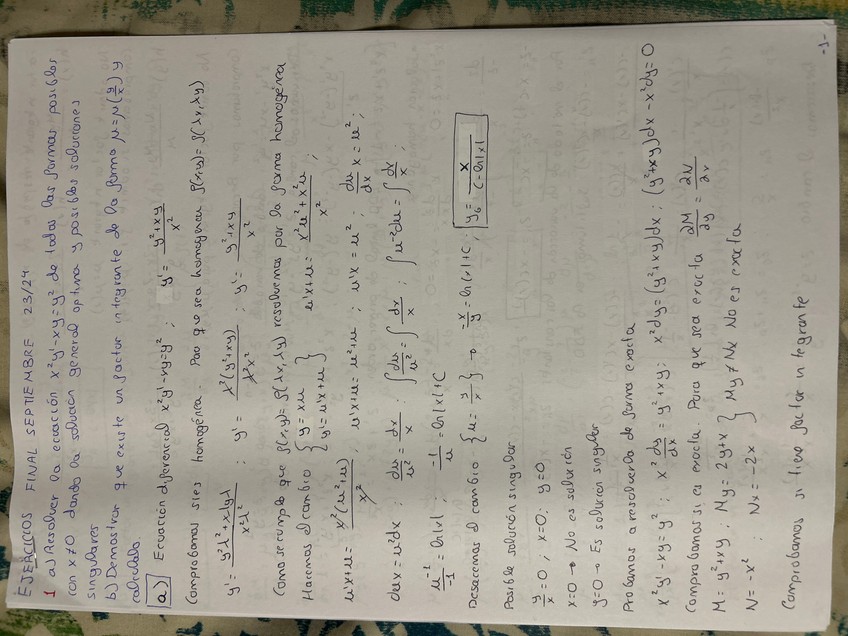 EJERCICIOS FINAL SEPTIEMBRE 23/24
1 a) Resolver la ecuación x²y'-xy=y² de todas las formas posibles
con x≠0 dando la solución general optima y posibles soluciones
singulares
b) Demostrar que existe un factor integrante de la forma μ=μ(y/x) y
calculalo.
a) Ecuación diferencial x²y'-xy=y² ; y' = (y²+xy)/x²
Comprobamos si es homogénea. Para que sea homogénea f(x,y)=f(λx,λy)
y' = (y²λ²+xλyλ)/(x²λ²) ; y' = λ²(y²+xy)/(λ²x²) ; y' = (y²+xy)/x²
Como se cumple que f(x,y)=f(λx,λy) resolvemos por la forma homogénea
Hacemos el cambio {y=xu ; y'=u'x+u} u'x+u = (x²u²+x²u)/x² ;
u'x+u = x²(u²+u)/x² ; u'x+u=u²+u ; u'x=u² ; du/dx x=u² ;
du x=u²dx ; du/u² = dx/x ; ∫du/u² = ∫dx/x ; ∫u⁻²du = ∫dx/x ;
u⁻¹/-1 = ln|x| ; -1/u = ln|x|+C
Desacemos el cambio {u=y/x} → -x/y = ln|x|+C ; y_G = x/(C-ln|x|)
Posible solución singular
y/x=0 ; x=0 ; y=0
x=0 → No es solución
y=0 → Es solución singular
Probamos a resolverla de forma exacta
x²y'-xy=y² ; x² dy/dx = y²+xy ; x²dy=(y²+xy)dx ; (y²+xy)dx-x²dy=0
Comprobamos si es exacta. Para que sea exacta ∂M/∂y = ∂N/∂x
M=y²+xy ; My=2y+x } My≠Nx No es exacta
N=-x² ; Nx=-2x
Comprobamos si tiene factor integrante
-1-